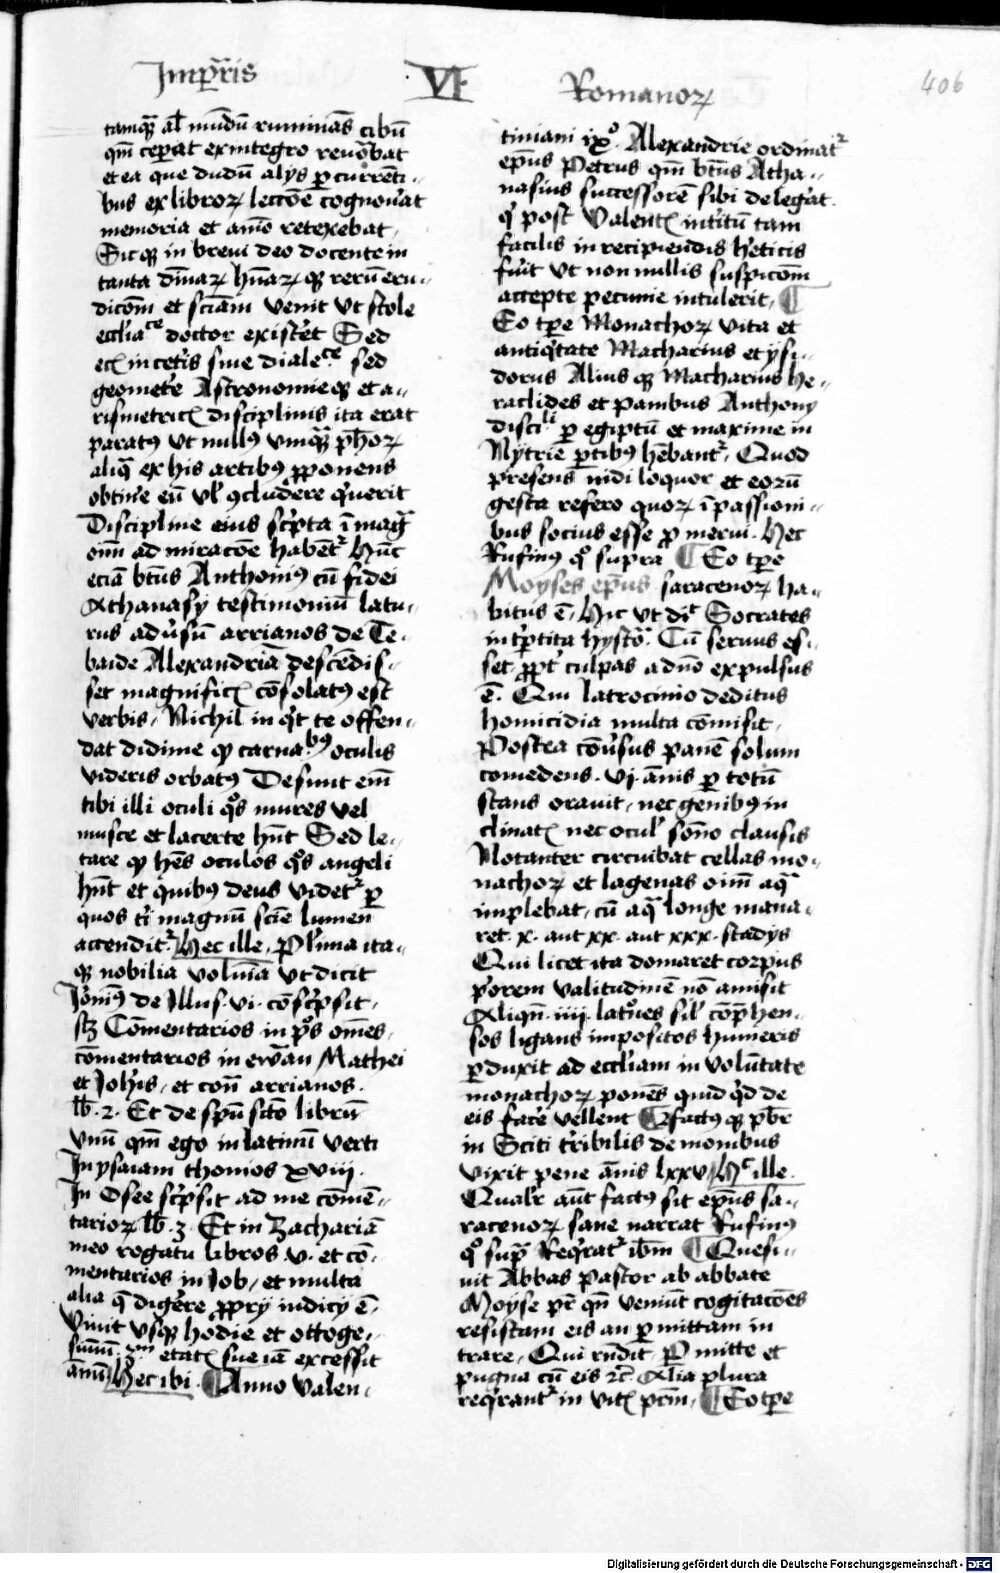 Imp̄ris VI Romanoꝝ 406
tamqȝ aīal mūdū ruminās cibū
qm̄ ceperat ex integro reuōbat
et ea que dudum alijs ꝑcurrenti-
bus ex libroꝝ lectōe cognouāt
memoria et aīo retexebat.
Sicqȝ in breui deo docente in
tanta diuinaꝝ hūaꝝqȝ rerū eru-
dicōm et sciam venit vt scole
eccl̄iace doctor existeret Sed
et in ceteris siue dialece. sed
geometrie Astronomieqȝ et a-
rismetrice disciplinis ita erat
paratꝰ vt nullꝰ vmqȝ ph̄oꝝ
aliqͣ ex his artibꝰ ꝓponens
obtinere eū vl̓ ꝯcludere querit
Discipline eius sc̓pta ī magͣ
oīm admiracōe habent̃ Hūc
eciā btūs Anthoniꝰ cū fidei
Athanasij testimoniū latu-
rus adusū arrianos de Te-
baide Alexandriā descēdis-
set magnifice cōsolatꝰ est
verbis. Nichil inqt te offen-
dat didime ꝙ carnabꝰ oculis
videris orbatꝰ Desunt em̄
tibi illi oculi qͦs mures vel
musce et lacerte hn̄t Sed le-
tare ꝙ hēs oculos qͦs angeli
hn̄t et quibꝰ deus videt̃ ꝑ
quos ti magnū scie lumen
accendit̃. Hec ille. Plima ita-
qȝ nobilia volūia vt dicit
Jeronimꝰ de Illus. vi. cōsc̓psit.
sȝ Cōmentarios in ps̄ omēs.
cōmentarios in ewan̄ Mathei
et Joh̄is. et cont̄ arrianos.
lib̄. 2. Et de sp̄u scto librū
vnū qm̄ ego in latinū verti
In ysaiam thomos xviij.
In Osee sc̓psit ad me cōmē-
tarioꝝ lib̄. 3. Et in Zachariā
meo rogatu libros v. et cō-
mentarios in Job. et multa
alia q̄ digere ꝓprij indicij ē.
Viuit vsqȝ hodie et octoge-
simū. 3m etatis sue iā excessit
annū. Hec ibi. ¶ Anno Valen-
tiniani ixͦ. Alexandrie ordinat̃
ep̄us Petrus qm̄ btūs Atha-
nasius successorē sibi delegat.
qͥ post Valentis intitū tam
facilis in recipiendis hēticis
fuit vt nonnullis suspicōm
accepte pecunie intulerit. ¶
Eo tp̄e Monachoꝝ vita et
antiqͥtate Macharius et ysi-
dorus Aliusqȝ Macharius he-
raclides et pambus Anthony
discili ꝑ egiptū et maxime in
Nytrie ꝑtibus hēbant̃. Quod
presens vidi loquor et eorū
gesta refero quoꝝ ī passioni-
bus socius esse ꝓmerui. Hec
Rufinꝰ qͦ supra ¶ Eo tp̄e
Moyses ep̄us saracenoꝝ ha-
bitus ē. Hic vt dic̓ Socrates
in tꝑtita hystoͬ. Cū seruus es-
set ꝓpt̓ culpas a dnō expulsus
ē. Qui latrocinio deditus
homicidia multa cōmisit.
Postea cōusus panē solum
comedens. vj. ānis ꝑ totū
stans orauit. nec genibꝰ in
clinatis nec oculis sōno clausis
Notanter circuibat cellas mo-
nachoꝝ et lagenas oīm aqͣ
implebat. cū aqͣ longe mana-
ret. x. aut xx. aut xxx. stadijs
Qui licet ita domaret corpus
p̓orem valitudinē nō amisit
Aliqn̄. iiij. latōes sil̓ cōp̄hen-
sos ligans impositos humeris
ꝑduxit ad eccl̄iam in volūtate
monachoꝝ ponēs quid qͥd de
eis facere vellent ¶ Factusqȝ pb̄r
in Sciti tribilis demonibus
vixit pene ānis lxxv. Hͨ ille.
Qualr̄ aūt factꝰ sit ep̄us sa-
racenoꝝ sane narrat Rufinꝰ
qͦ supͣ Reqͥrat̃ ibm̄ ¶ Quesi-
uit Abbas pastor ab abbate
Moyse pr̄ qn̄ veniūt cogitacōes
resistam eis an ꝑmittam in
trare. Qui rn̄dit. Pmitte et
pugna cū eis ꝛc̄. Alia plura
reqͥrant̃ in vitis pr̄m. ¶ Eo tp̄e
Digitalisierung gefördert durch die Deutsche Forschungsgemeinschaft - DFG